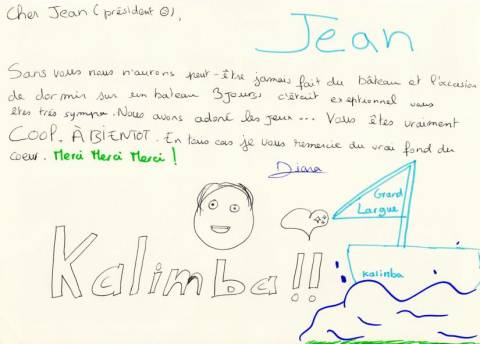 Cher Jean (président ☺),
Jean
Sans vous nous n'aurons peut-être jamais fait du bâteau et l'occasion
de dormir sur un bateau 3 jours, c'était exeptionnel vous
êtes très sympa. Nous avons adoré les jeux... Vous êtes vraiment
COOL. À BIENTOT. En tous cas je vous remercie du vrai fond du
coeur. Merci Merci Merci !
Diana
Kalimba !!
Grand
Largue
Kalimba